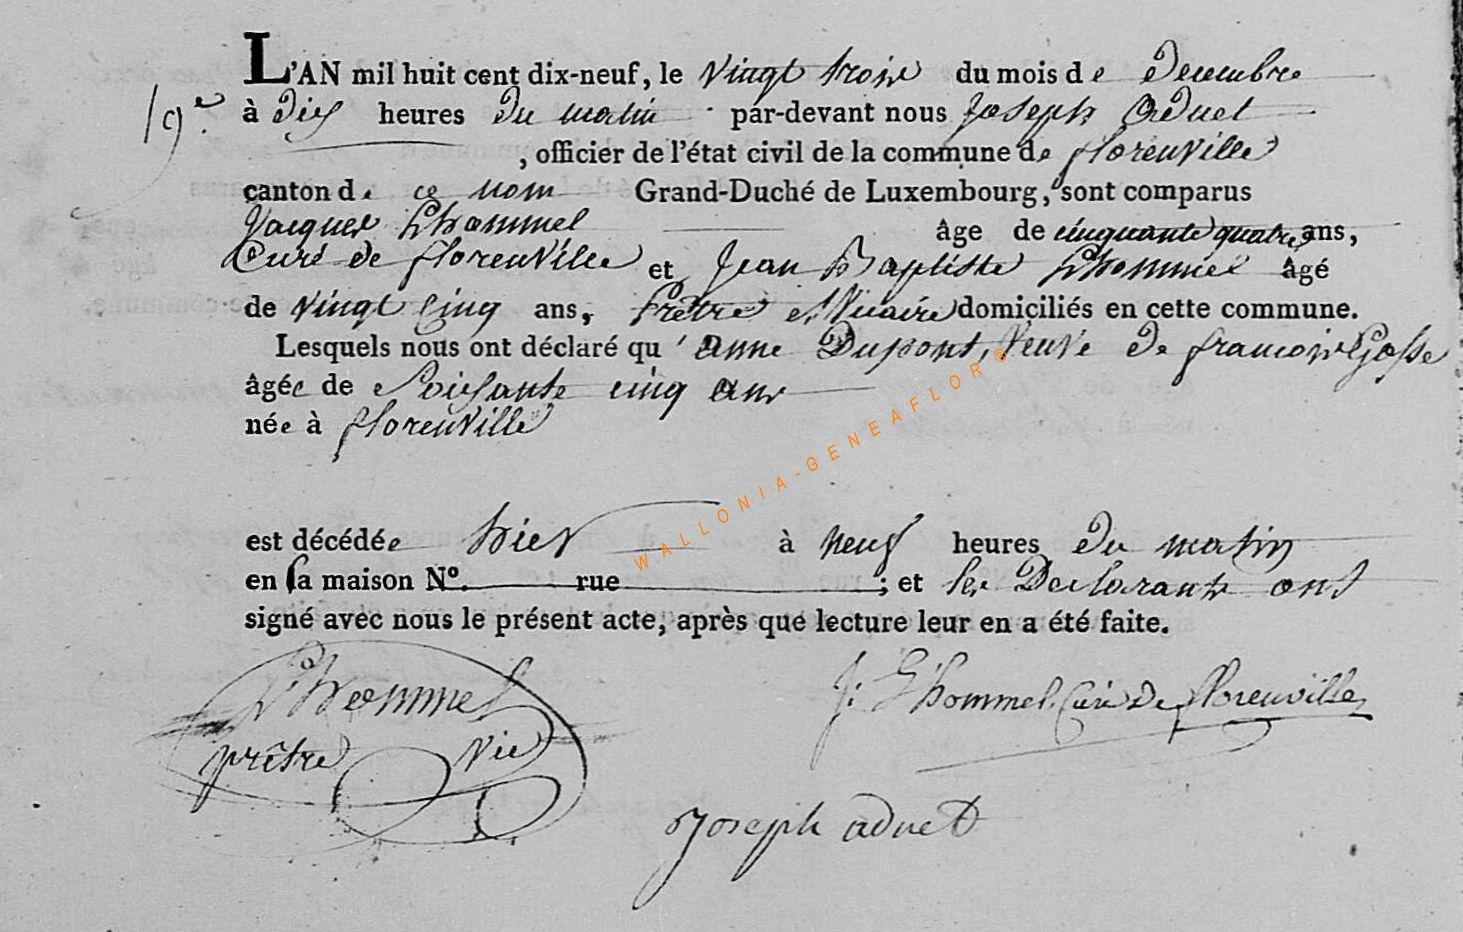 L'AN mil huit cent dix-neuf, le vingt trois du mois de Decembre
19e. à Dix heures Du matin par-devant nous Joseph Aduet
, officier de l'état civil de la commune de florenville
canton de ce nom Grand-Duché de Luxembourg, sont comparus
Jacques Lhommel âge de cinquante quatre ans,
Curé de florenville et Jean Baptiste Lhommel âgé
de vingt Cinq ans, Prêtre et Vicaire domiciliés en cette commune.
Lesquels nous ont déclaré qu'Anne Dupont, Veuve De francois Gosse
âgée de Soixante cinq ans
née à florenville
est décédée hier à neuf heures du matin
en sa maison No. rue ; et les Declarants ont
signé avec nous le présent acte, après que lecture leur en a été faite.
L'hommel J: L'hommel Curé De florenville
prêtre vic
Joseph aduet
WALLONIA-GENEAFLOR©